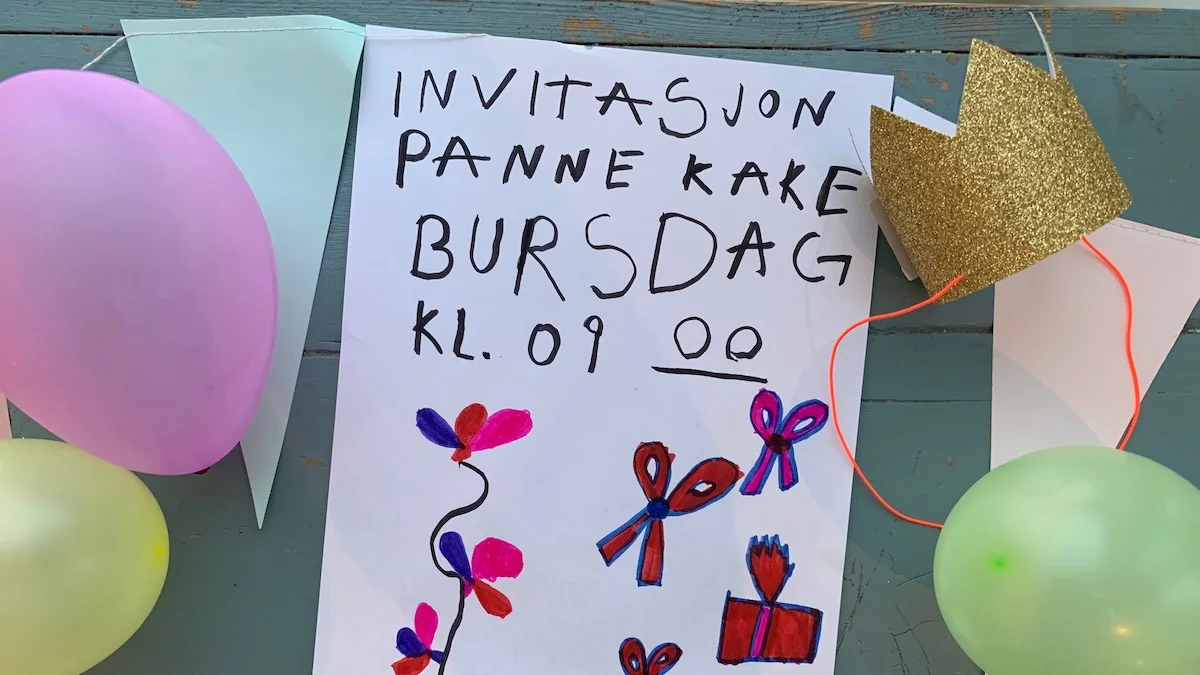 INVITASJON
PANNE KAKE
BURSDAG
KL. 09 00